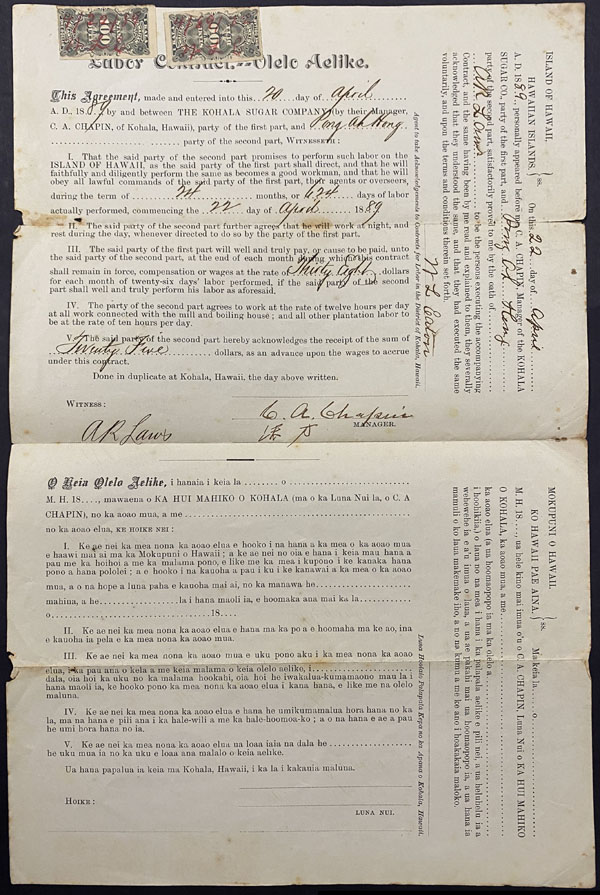 Labor Contract.--Olelo Aelike.
This Agreement, made and entered into this 20 day of April
A. D., 1889 by and between THE KOHALA SUGAR COMPANY by their Manager,
C. A. CHAPIN, of Kohala, Hawaii), party of the first part, and
party of the second part, WITNESSETH:
I. That the said party of the second part promises to perform such labor on the
ISLAND OF HAWAII, as the said party of the first part shall direct, and that he will
faithfully and diligently perform the same as becomes a good workman, and that he will
obey all lawful commands of the said party of the first part, their agents or overseers,
during the term of 24 months, or 624 days of labor
actually performed, commencing the 22 day of April 1889
II. The said party of the second part further agrees that he will work at night, and
rest during the day, whenever directed to do so by the party of the first part.
III. The said party of the first part will well and truly pay, or cause to be paid, unto
the said party of the second part, at the end of each month during which this contract
shall remain in force, compensation or wages at the rate of Thirty Eight dollars
for each month of twenty-six days' labor performed, if the said party of the second
part shall well and truly perform his labor as aforesaid.
IV. The party of the second part agrees to work at the rate of twelve hours per day
at all work connected with the mill and boiling house; and all other plantation labor to
be at the rate of ten hours per day.
V. The said party of the second part hereby acknowledges the receipt of the sum of
Twenty Five dollars, as an advance upon the wages to accrue
under this contract.
Done in duplicate at Kohala, Hawaii, the day above written.
WITNESS:
C. A. Chapin
MANAGER.
A R Laws
O Keia Olelo Aelike, i hanaia i keia la o
M. H. 18...., mawaena o KA HUI MAHIKO O KOHALA (ma o ka Luna Nui la, o C. A
CHAPIN), no ka aoao mua, a me
no ka aoao elua, KE HOIKE NEI:
I. Ke ae nei ka mea nona ka aoao elua e hooko i na hana a ka mea o ka aoao mua
e haawi mai ai ma ka Mokupuni o Hawaii; a ke ae nei no oia e hana i keia mau hana a
pau me ka hoihoi a me ka malama pono, e like me ka mea i kupono i ke kanaka hana
pono a hana pololei; a e hooko i na kauoha a pau i ku i ke kanawai a ka mea o ka aoao
mua, a o na hope a luna paha e kauoha mai ai, no ka manawa he
mahina, a he la i hana maoli ia, e hoomaka ana mai ka la
o 18....
II. Ke ae nei ka mea nona ka aoao elua e hana ma ka po a e hoomaha ma ke ao, ina
e kauoha ia pela e ka mea nona ka aoao mua.
III. Ke ae nei ka mea nona ka aoao mua e uku pono aku i ka mea nona ka aoao
elua, i ka pau ana o kela a me keia malama o keia olelo aelike, i
dala, oia hoi ka uku no ka malama hookahi, oia hoi he iwakalua-kumamaono mau la i
hana maoli ia, ke hooko pono ka mea nona ka aoao elua i kana hana, e like me na olelo
maluna.
IV. Ke ae nei ka mea nona ka aoao elua e hana he umikumamalua hora hana no ka
la, ma na hana e pili ana i ka hale-wili a me ka hale-hoomoa-ko; a o na hana e ae a pau
he umi hora hana no ia.
V. Ke ae nei ka mea nona ka aoao elua ua loaa iaia na dala he
he uku mua ia no ka uku e loaa ana malalo o keia aelike.
Ua hana papalua ia keia ma Kohala, Hawaii, i ka la i kakauia maluna.
HOIKE:
LUNA NUI.
ISLAND OF HAWAII,
HAWAIIAN ISLANDS. ss.
On this 22 day of April
A. D. 1889, personally appeared before me C. A. CHAPIN, Manager of the KOHALA
SUGAR CO., party of the first part, and
party of the second part, satisfactorily proved to me by the oath of
A R Laws to be the persons executing the accompanying
Contract, and the same having been by me read and explained to them, they severally
acknowledged that they understood the same, and that they had executed the same
voluntarily, and upon the terms and conditions therein set forth.
Agent to take Acknowledgements to Contracts for Labor in the District of Kohala, Hawaii.
MOKUPUNI O HAWAII,
KO HAWAII PAE AINA. ss.
Ma keia la o
M. H. 18...., ua hele kino mai imua o'u o C. A. CHAPIN Luna Nui o KA HUI MAHIKO
O KOHALA, no ka aoao mua, a me